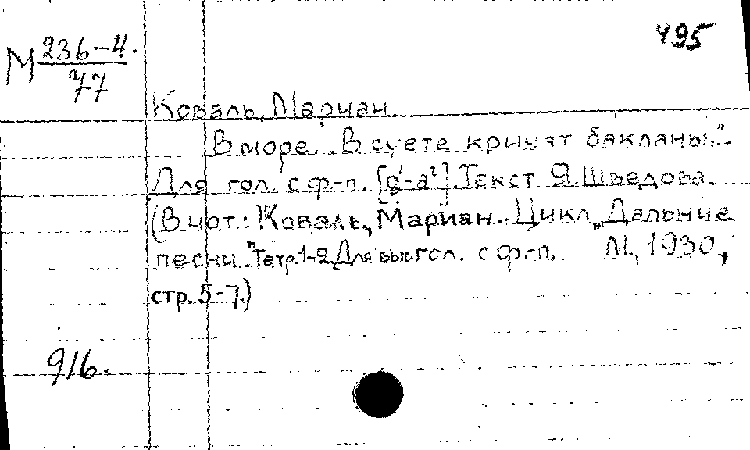 495
М 236-4
77
Коваль, Мариан.
В море. „В суете кричат бакланы..."
Для гол. с ф-п. Текст Я. Шведова.
(В нот.: Коваль, Мариан. Цикл „Дальние
песни." Тетр. 1-2. Для выс. гол. с ф-п. М., 1930,
стр. 5-7.)
916.